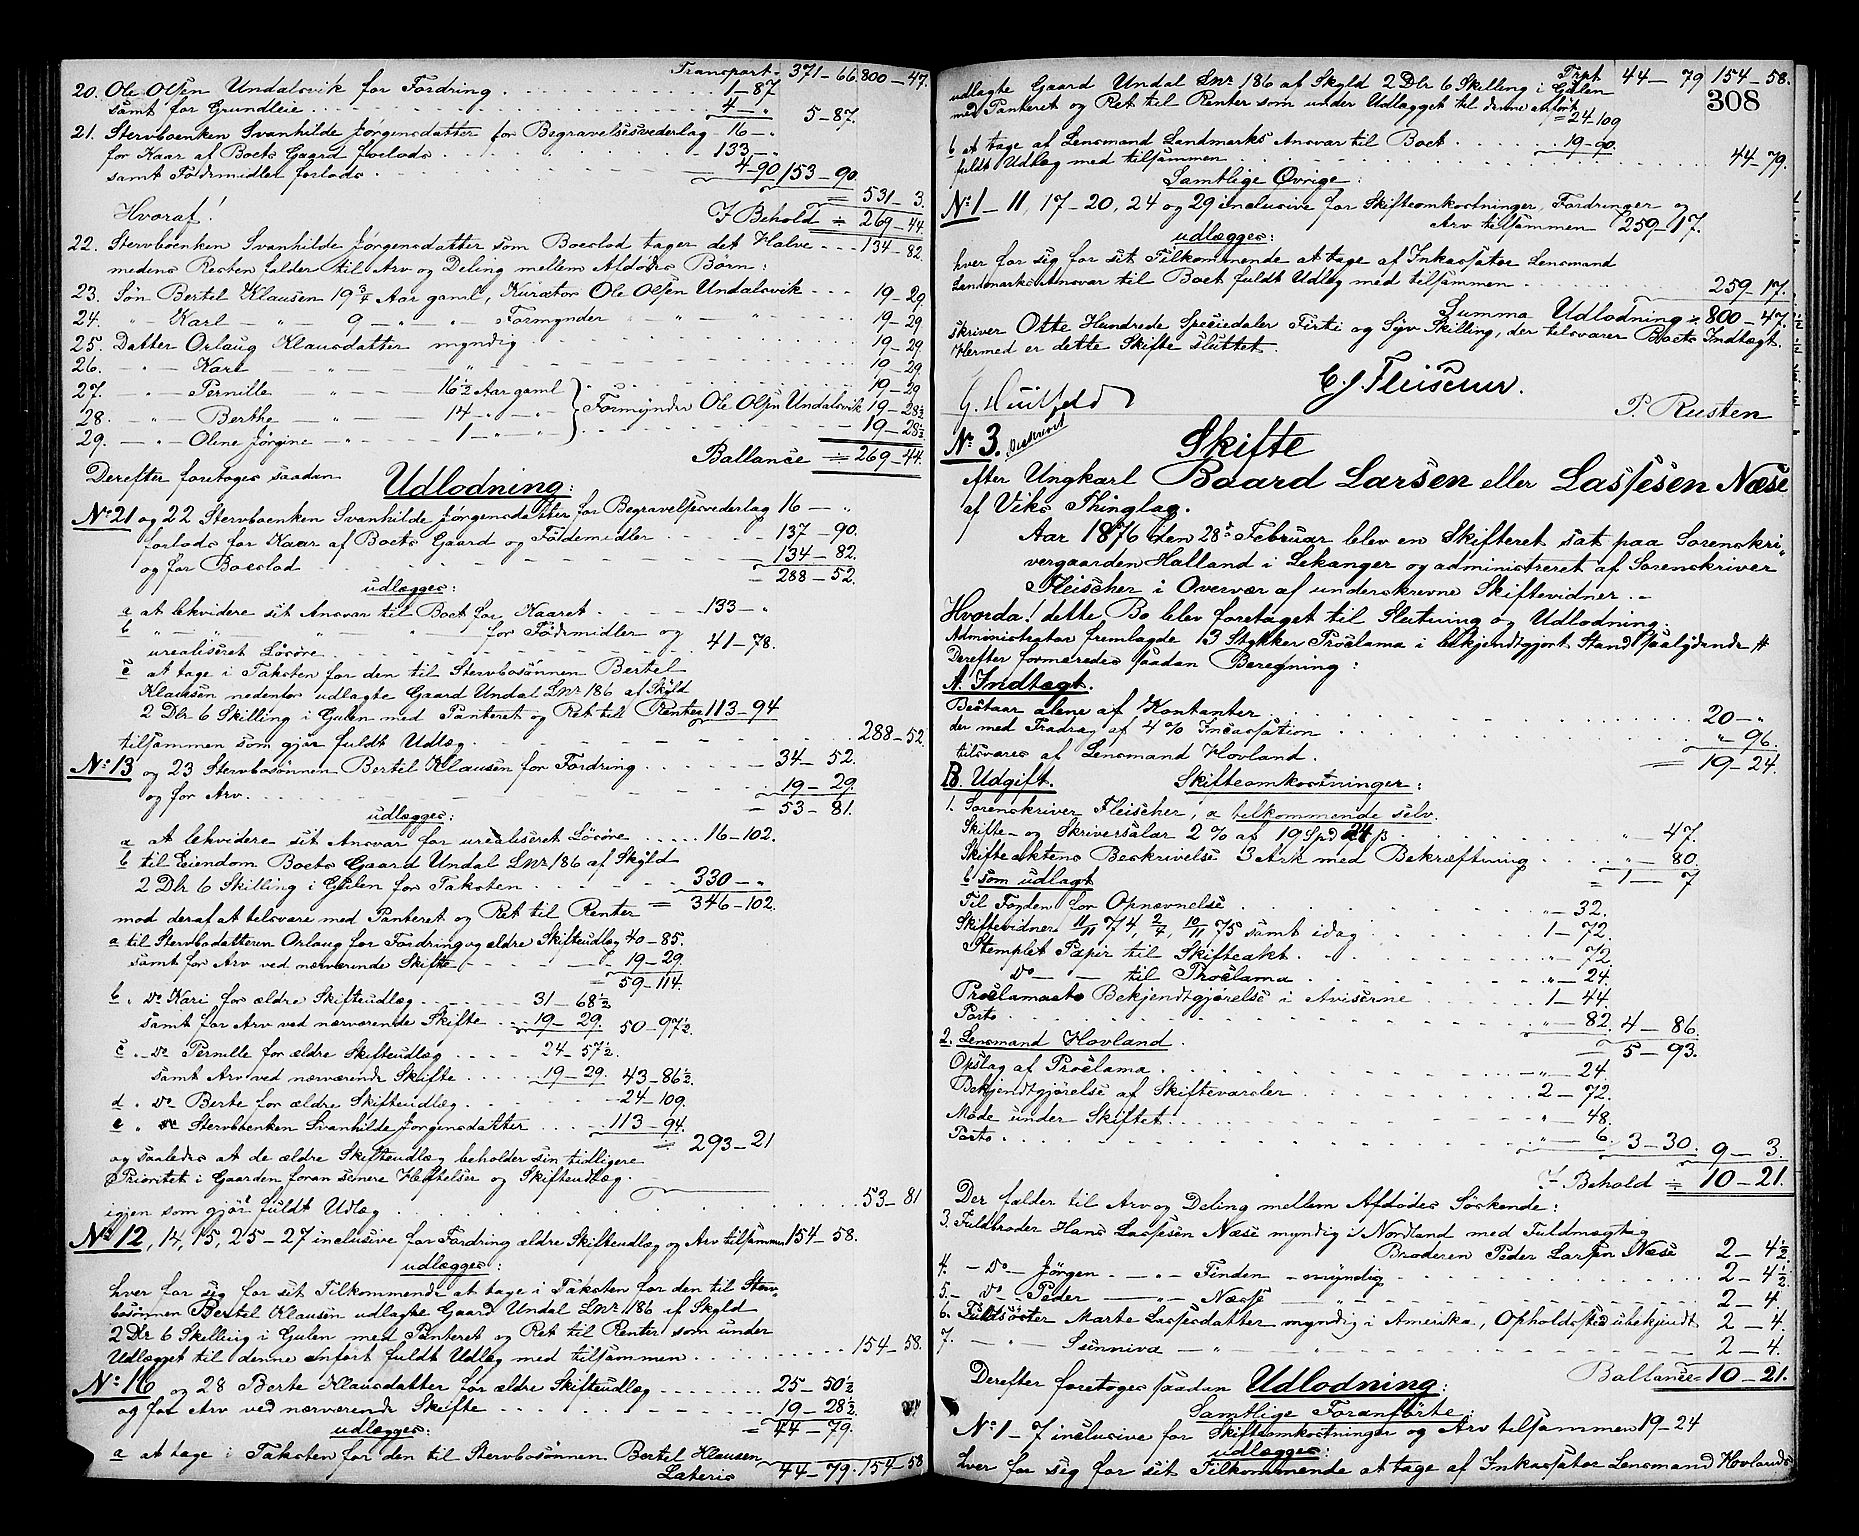 Transport. 371-66. 800-47.
20. Ole Olsen Undalsvik for Fordring 1-87
samt for Grundleie 4-" 5-87.
21. Stervboenken Svanhilde Jørgensdatter for Begravelsesvederlag 16-"
for Kaar af Boets Gaard forlods 133-"
samt Födemidler forlods 4-90 153-90
= 531-3.
Hvoraf! I Behold = 269-44.
22. Stervboenken Svanhilde Jørgensdatter som Boeslod tager det Halve 134-82.
medens Resten falder til Arv og Deling mellem Afdödes Börn:
23. Søn Bertel Klausen 19 3/4 Aar gaml, Kurator Ole Olsen Undalsvik 19-29.
24. " - Karl - " - 9 - " - " - Formynder - " - " - " 19-29
25. Datter Orlaug Klausdatter myndig 19-29.
26. - " - Kari - " - " 19-29.
27. - " - Pernille - " - 16 1/2 Aar gaml 19-29
28. - " - Berthe - " - 14 - " - " - Formynder Ole Olsen Undalsvik 19-28 1/2
29. - " - Oline Jørgine - " - 1 - " - " 19-28 1/2.
Ballance = 269-44.
Derefter foretoges saadan Udlodning:
No 21 og 22 Stervboenken Svanhilde Jørgensdatter for Begravelsesvederlag 16-"
forlods for Kaar af Boets Gaard og Födemidler 137-90.
og for Boeslod 134-82.
= 288-52.
udlægges:
a at likvidere sit Ansvar til Boet for Kaaret 133-"
b " - " - " - for Födemidler og
urealiseret Lösöre 41-78.
c at tage i Taksten for den til Stervbosönnen Bertel
Klausen nedenfor udlagte Gaard Undal Lnr 186 af Skyld
2 Dlr 6 Skilling i Gulen med Panteret og Ret til Renter 113-94
tilsammen som gjør fuldt Udlæg 288-52
No 13 og 23 Stervbosönnen Bertel Klausen for Fordring 34-52.
og for Arv 19-29.
= 53-81.
udlægges:
a at likvidere sit Ansvar for urealiseret Lösöre 16-102.
b til Eiendom Boets Gaard Undal Lnr 186 af Skyld
2 Dlr 6 Skilling i Gulen for Taksten 330-"
= 346-102.
mod deraf at tilsvare med Panteret og Ret til Renter
a til Stervbodatteren Orlaug for Fordring og ældre Skifteudlæg 40-85.
samt for Arv ved nærværende Skifte 19-29.
= 59-114.
b " do Kari for ældre Skifteudlæg 31-68 1/2
samt for Arv ved nærværende Skifte 19-29. 50-97 1/2
c " do Pernille for ældre Skifteudlæg 24-57 1/2.
samt Arv ved nærværende Skifte 19-29. 43-86 1/2.
d " do Berte for ældre Skifteudlæg 24-109.
e " Stervboenken Svanhilde Jørgensdatter 113-94.
= 293-21
og saaledes at de ældre Skifteudlæg beholder sin tidligere
Prioritet i Gaarden foran senere Heftelser og Skifteudlæg.
igjen som gjør fuldt Udlæg 53-81
No 12, 14, 15, 25-27 inclusive for Fordring ældre Skifteudlæg og Arv tilsammen 154-58.
udlægges:
hver for sig for sit Tilkommende at tage i Taksten for den til Sterv-
bosönnen Bertel Klausen udlagte Gaard Undal Lnr 186 af Skyld
2 Dlr 6 Skilling i Gulen med Panteret og Ret til Renter som under
Udlægget til denne anført fuldt Udlæg med tilsammen 154-58.
No 16 og 28 Berte Klausdatter for ældre Skifteudlæg 25-50 1/2
og for Arv ved nærværende Skifte 19-28 1/2.
= 44-79.
udlægges:
a at tage i Taksten for den til Stervbosönnen Bertel Klausen
Lateris 44-79. 154-58
Trpt 44-79 154-58.
308
udlagte Gaard Undal Lnr 186 af Skyld 2 Dlr 6 Skilling i Gulen
med Panteret og Ret til Renter som under Udlægget til denne anført
= 24-109
b at tage af Lensmand Landmarks Ansvar til Boet 19-90.
fuldt Udlæg med tilsammen 44-79.
Samtlige Øvrige:
No 1-11, 17-20, 24 og 29 inclusive for Skifteomkostninger, Fordringer og
Arv tilsammen 259-17.
udlægges:
hver for sig for sit Tilkommende at tage af Inkassator Lensmand
Landmarks Ansvar til Boet fuldt Udlæg med tilsammen 259-17.
Summa Udlodning = 800-47.
skriver Otte Hundrede Speciedaler Firti og Syv Skilling, der tilsvarer Boets Indtægt.
Hermed er dette Skifte sluttet.
C J Fleischer.
P. Rusten
No 3. Beskrevet
Skifte
efter Ungkarl Baard Larsen eller Lassesen Næse
af Viks Thinglag.
Aar 1876 den 28de Februar blev en Skifteret sat paa Sorenskri-
vergaarden Halland i Lekanger og administreret af Sorenskriver
Fleischer i Overvær af underskrevne Skiftevidner.-
Hvorda! dette Bo blev foretaget til Slutning og Udlodning.
Administrator fremlagde 13 Stykker Proclama i bekjendtgjort Stand saalydende #
Derefter formeredes saadan Beregning:
A. Indtægt.
Bestaar alene af Kontanter 20-"
der med Fradrag af 4% Incassation "96.
tilsvares af Lensmand Hovland. = 19-24.
B. Udgift. Skifteomkostninger:
1. Sorenskriver Fleischer, a tilkommende selv.
Skifte- og Skriversalær 2% af 19 Spd 24 ß "-47.
Skifteaktens Beskrivelse 3 Ark med Bekræftning "-80.
= 1-7
b som udlagt
Til Fogden for Opnævnelse "-32.
Skiftevidner 11/11 74, 2/7, 10/11 75 samt idag 1-72.
Stemplet Papir til Skifteakt "-72
do - - til Proclama "-24.
Proclamaets Bekjendtgjørelse i Aviserne 1-44.
Porto "-82. 4-86.
= 5-93.
2. Lensmand Hovland.
Opslag af Proclama "-24.
Bekjendtgjørelse af Skiftevarsler 2-72.
Møde under Skiftet "-48.
Porto "-6. 3-30. 9-3.
I Behold = 10-21.
Der falder til Arv og Deling mellem Afdødes Söskende:
3. Fuldbroder Hans Lassesen Næse myndig i Nordland med Fuldmægtig
Broderen Peder Larsen Næse 2-4 1/2
4. - do - Jörgen - " - Finden - myndig 2-4 1/2.
5. - do - Peder - " - Næse - " 2-4.
6. Fuldsöster Marte Lassesdatter myndig i Amerika, Opholdssted ubekjendt 2-4.
7. - " - Sunniva - " - " 2-4.
Ballance 10-21.
Derefter foretoges saadan Udlodning:
Samtlige Foranførte:
No 1-7 inclusive for Skifteomkostninger og Arv tilsammen 19-24
udlægges:
hver for sig for sit Tilkommende at tage af Inkassator Lensmand Hovlands